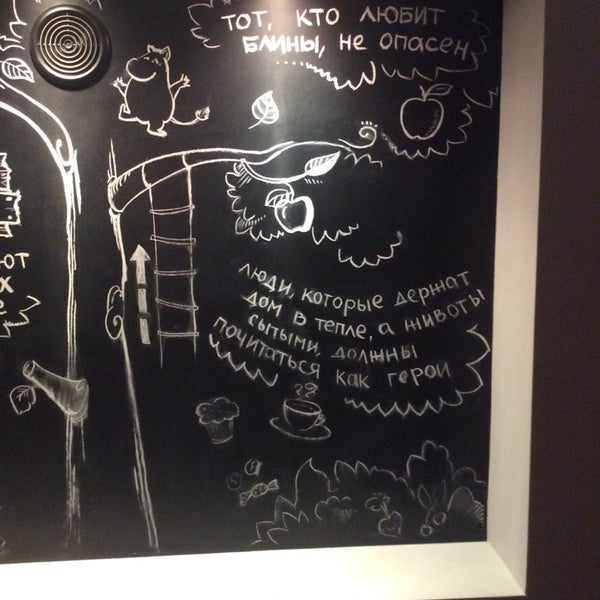 ТОТ, КТО ЛЮБИТ
БЛИНЫ, НЕ ОПАСЕН
ЛЮДИ, КОТОРЫЕ ДЕРЖАТ
ДОМ В ТЕПЛЕ, А ЖИВОТЫ
СЫТЫМИ, ДОЛЖНЫ
ПОЧИТАТЬСЯ КАК ГЕРОИ